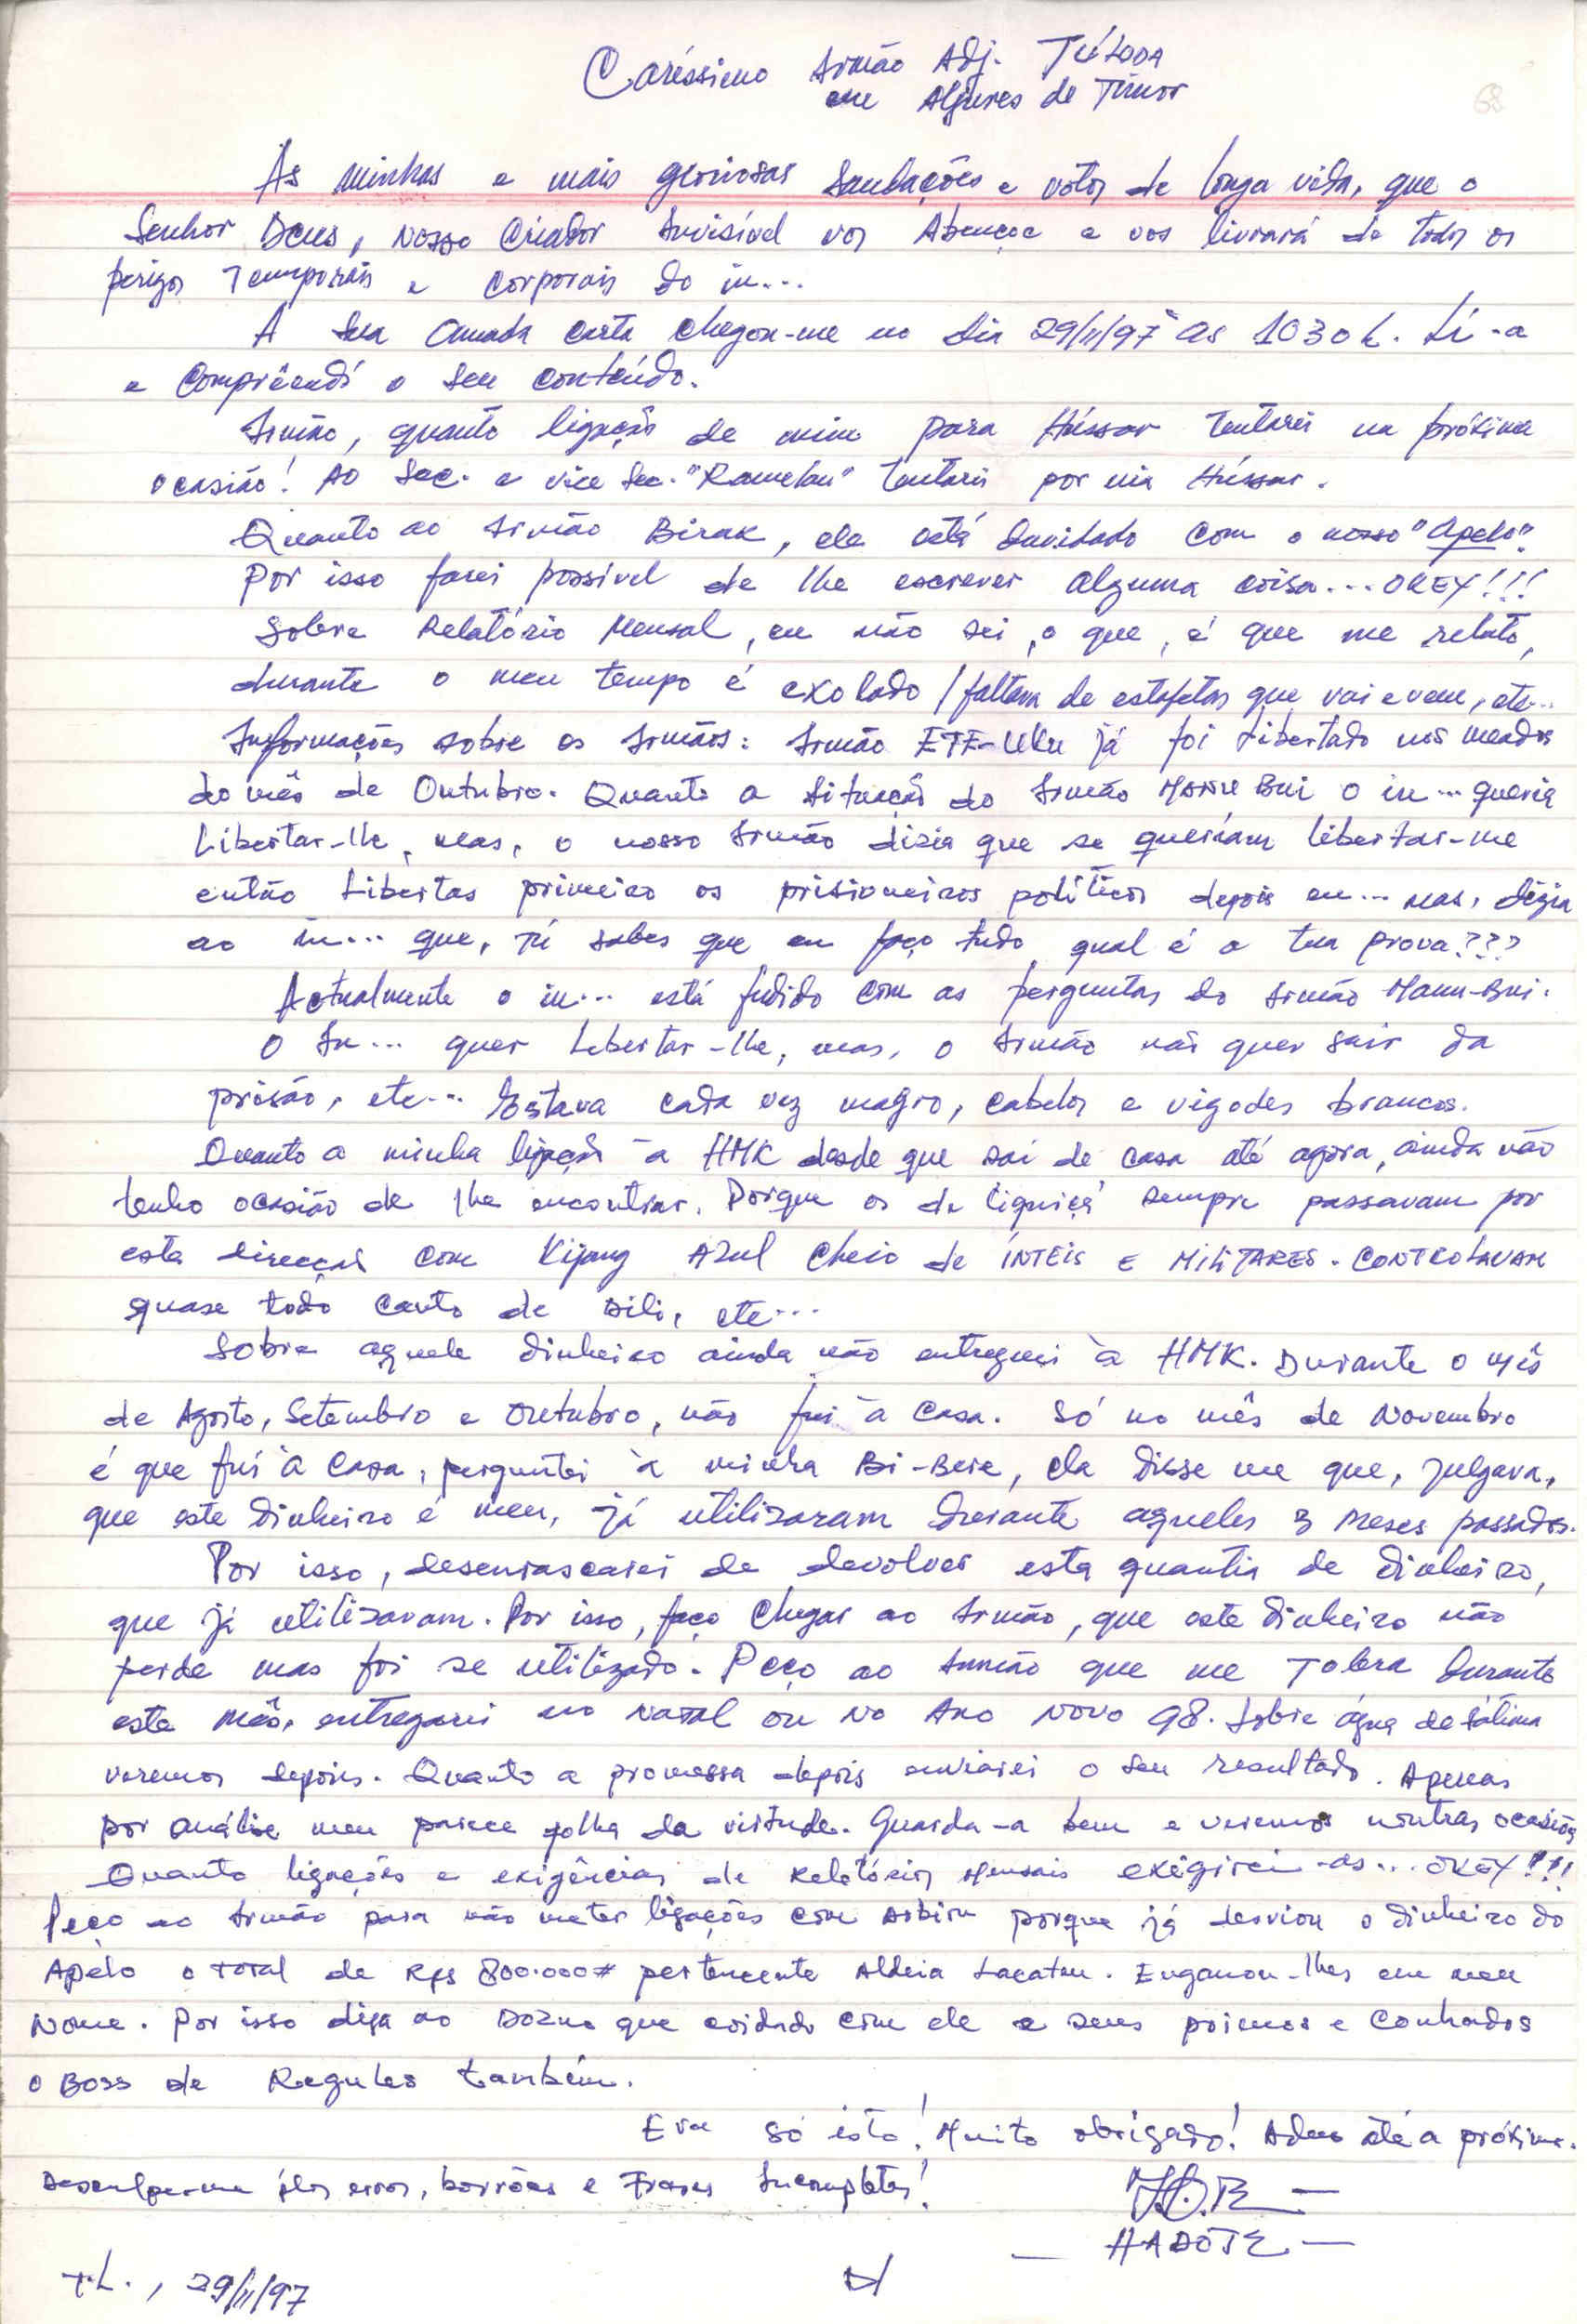 Caríssimo Irmão Adj. TÚLODA
em Algures de Timor
68
As minhas e mais gloriosas Saudações e votos de longa vida, que o
Senhor Deus, Nosso Criador Invisível vos Abençoe e vos livrará de todos os
perigos Temporais e corporais do in...
A sua Amada carta chegou-me no dia 29/11/97 as 1030h. Lí-a
e Comprêendí o seu conteúdo.
Irmão, quanto ligação de mim para Hússar tentarei na próxima
ocasião! Ao Sec. e vice Sec. "Ramelau" tentarei por via Hússar.
Quanto ao Irmão Birak, ele está duvidado com o nosso "Apelo".
Por isso farei possível de lhe escrever alguma coisa... OKEY!!!
Sobre Relatório Mensal, eu não sei, o que, é que me relato,
durante o meu tempo é exolado / faltam de estafetas que vai e vem, etc...
Informações sobre os Irmãos: Irmão ETE-UKu já foi Libertado nos meados
do mês de Outubro. Quanto a situação do Irmão Bui o in... queria
Libertar-lhe, mas, o nosso Irmão dizia que se queriam libertar-me
então Libertas primeiro os prisioneiros políticos depois eu... mas, dizia
ao in... que, Tú sabes que eu faço tudo, qual é a tua prova???
Actualmente o in... está fudido com as perguntas do Irmão Maun-Bui.
O In... quer Libertar-lhe, mas, o Irmão não quer sair da
prisão, etc... Estava cada vez magro, cabelos e vigodes brancos.
Quanto a minha ligação à HMK desde que saí de casa até agora, ainda não
tenho ocasião de lhe encontrar. Porque os de Liquiçá sempre passavam por
esta direcção com Kijang Azul cheio de ÍNTEIS E MILITARES. CONTROLAVAM
quase todo canto de Dili, etc...
Sobre aquele dinheiro ainda não entreguei à HMK. Durante o mês
de Agosto, Setembro e Outubro, não fui à casa. Só no mês de Novembro
é que fui à casa, perguntei à minha Bi-Bere, ela disse me que, julgava,
que este dinheiro é meu, já utilizaram durante aqueles 3 meses passados.
Por isso, desenrascarei de devolver esta quantia de dinheiro,
que já utilizavam. Por isso, faço chegar ao Irmão, que este dinheiro não
perde mas foi se utilizado. Peço ao Irmão que me Tolera durante
este mês, entregarei no Natal ou no Ano Novo 98. Sobre água de Fátima
veremos depois. Quanto a promessa depois enviarei o seu resultado. Apenas
por análise meu parece folha da virtude. Guarda-a bem e veremos noutras ocasiões
Quanto ligações e exigências de Relatórios Mensais exigirei-as... OKEY!!!
Peço ao Irmão para não meter ligações com porque já desviou o dinheiro do
Apelo o total de Rps 800.000# pertencente Aldeia Lacatau. Enganou-lhes em meu
Nome. Por isso diga ao que coidado com ele e seus primos e Conhados
o Boss de Regules também.
Era só isto! Muito obrigado! Adeus até a próxima.
Desculpe-me plos erros, borrões e Frases Incompletas!
HADÓTE
T.L., 29/11/97